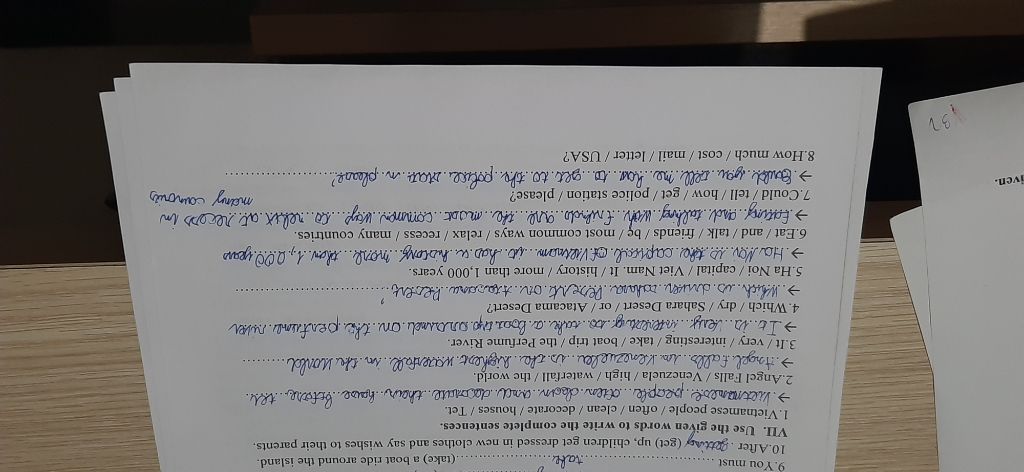 9.You must take (take) a boat ride around the island.
10.After getting (get) up, children get dressed in new clothes and say wishes to their parents.
VII. Use the given words to write the complete sentences.
1.Vietnamese people / often / clean / decorate / houses / Tet.
→ Vietnamese people often and decorate house before tet.
2.Angel Falls / Venezuela / high / waterfall / the world.
→ Angel Falls in Venezuela is the highest waterfall in the world
3.It / very / interesting / take / boat trip / the Perfume River.
→ It is very to take a boat the perfume river
4.Which / dry / Sahara Desert / or / Atacama Desert?
→ Which is Desert or Desert
5.Ha Noi / capital / Viet Nam. It / history / more than 1,000 years.
→ Ha Noi is the capital of Vietnam it has a history more than 1,000 years
6.Eat / and / talk / friends / be / most common ways / relax / recess / many countries.
→ Eating and talking with friends are the most common way to relax at recess in
many
7.Could / tell / how / get / police station / please?
→ Could you tell me how to get to the police please?
8.How much / cost / mail / letter / USA?
iven.
32